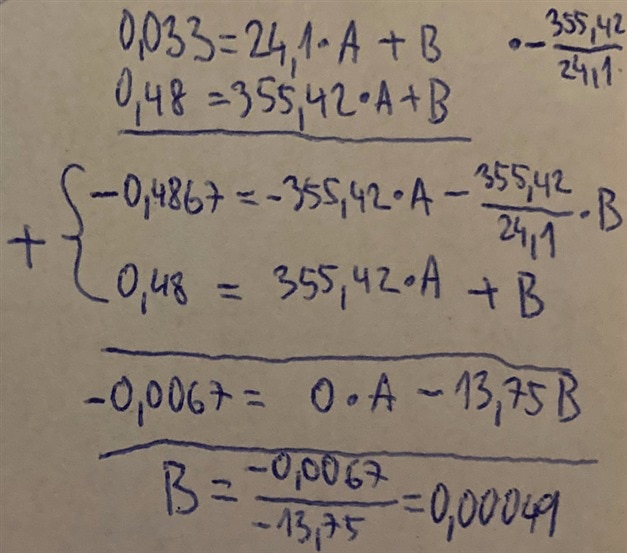 0,033=24,1•A + B •-355,42/24,1
0,48 =355,42•A+B
+ { -0,4867 = -355,42•A - 355,42/24,1 •B
0,48 = 355,42•A + B
-0,0067 = 0•A - 13,75B
B = -0,0067/-13,75 =0,00049